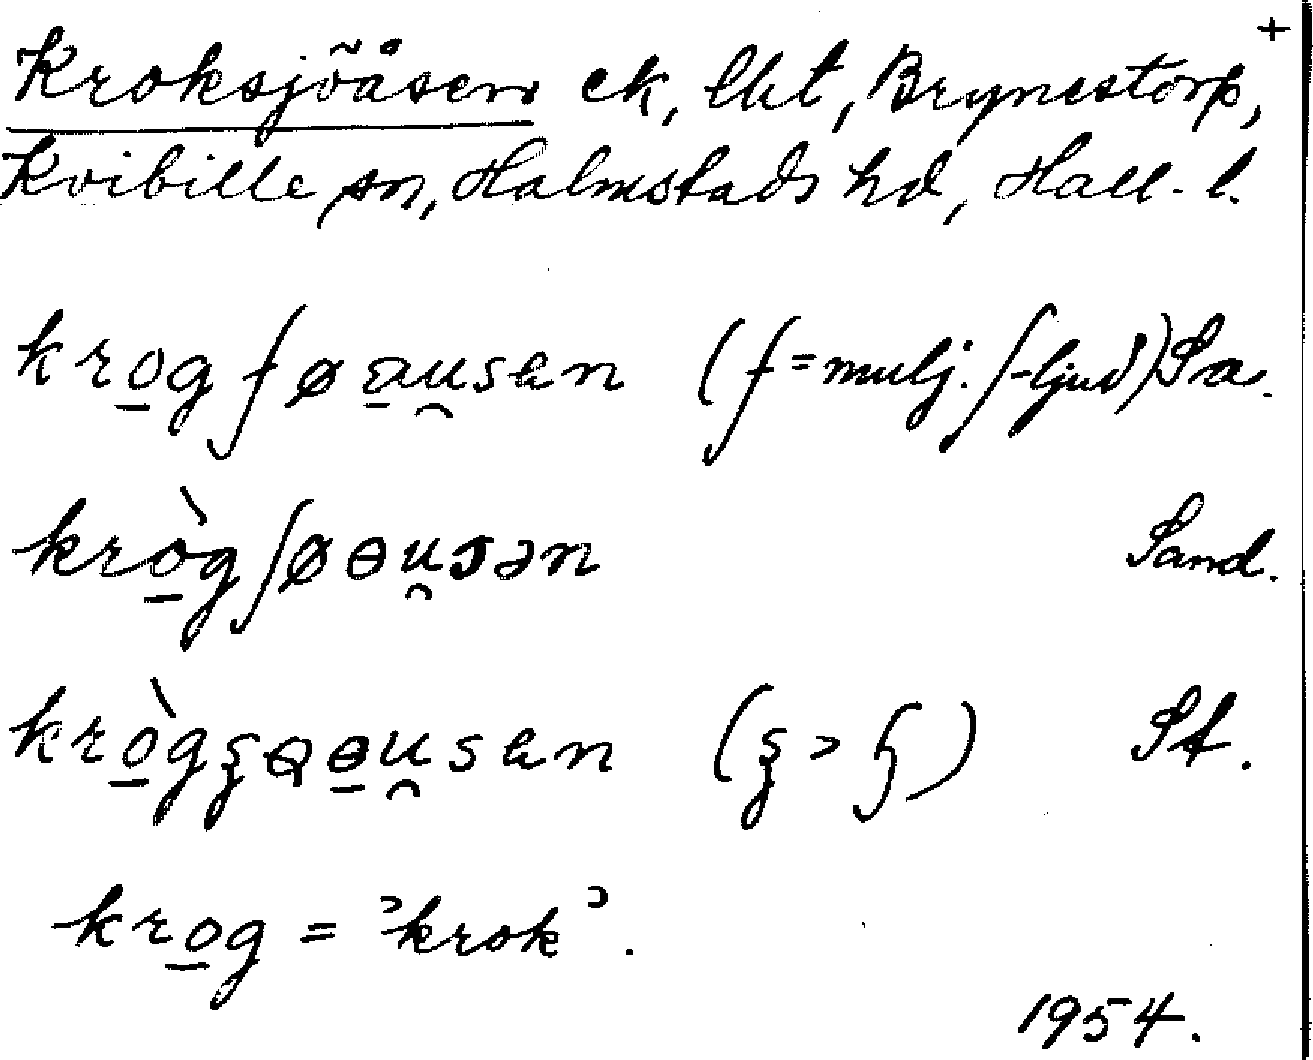 +
Kroksjöåsen ek, lht, Brynestorp,
Kvibille sn, Halmstads hd, Hall. l.
kro̲gʄøa̲u̯sen (ʄ=mulj. ʃ-ljud) Sa.
krò̲gʃøɵu̯sən Sand.
krò̲gʂɵ̲u̯sen St.
kro̲g = ’krok’.
1954.